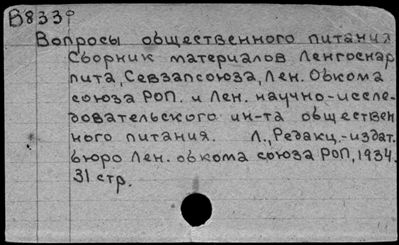 В833
Вопросы общественного питания
Сборник материалов Ленгоснар
пита, Севзапсоюза, Лен. Обкома
союза РОП. и Лен. научно-иссле-
довательского ин-та обществен
ного питания. Л., Редакц.-издат.
бюро Лен. обкома союза РОП, 1934.
31 стр.